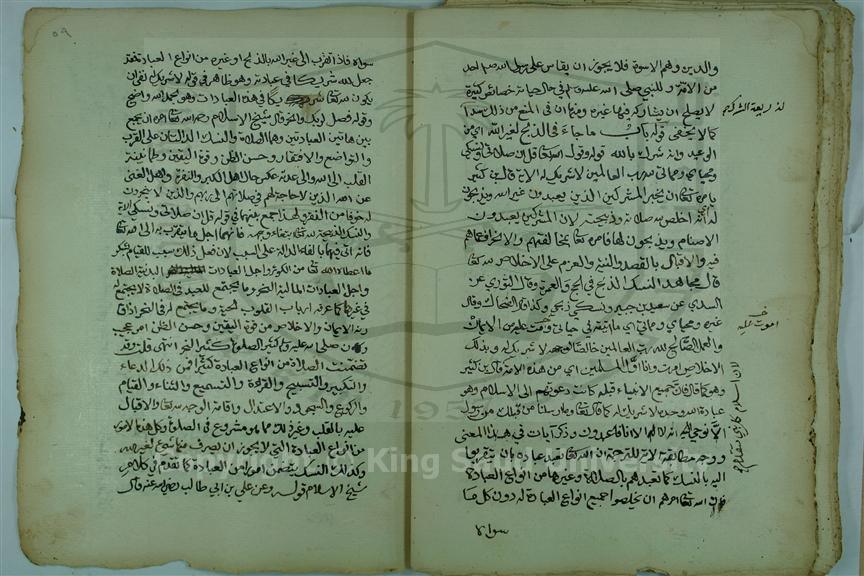 والدين وهم الاسوة فلا يجوز ان يقاس على رسول الله صلى احد
من الامة وللنبي صلى الله عليه وسلم في حال حياته خصائص كثيرة
لا يصلح ان يشاركه فيها غيره ومنها ان في المنع من ذلك سدا
لذريعة الشرك
كما لا يخفى قوله باب ما جاء في الذبح لغير الله اي من
الوعيد وانه شرك بالله قوله وقول الله تعالى قل ان صلاتي ونسكي
ومحياي ومماتي لله رب العالمين لا شريك له الاية قال ابن كثير
يامره تعالى ان يخبر المشركين الذين يعبدون غير الله ويذبحون
له بانه اخلص لله صلاته وذبيحته لان المشركين يعبدون
الاصنام ويذبحون لها فامره الله تعالى بمخالفتهم والانحراف عما هم
فيه والاقبال بالقصد والنية والعزم على الاخلاص لله تعالى
قال مجاهد النسك الذبح في الحج والعمرة وقال الثوري عن
السدي عن سعيد بن جبير ونسكي ذبحي وكذا قال الضحاك وقال
غيره ومحياي ومماتي اي ما اتيته في حياتي وما اموت عليه من الايمان
اموت عليه
والعمل الصالح لله رب العالمين خالصا لوجهه لا شريك له وبذلك
الاخلاص امرت وانا اول المسلمين اي من هذه الامة قال ابن كثير
وهو كما قال فان جميع الانبياء قبله كانت دعوتهم الى الاسلام وهو
لان اسلام كل نبي متقدم
عبادة الله وحده لا شريك له كما قال تعالى وما ارسلنا من قبلك من رسول
الا نوحي اليه انه لا اله الا انا فاعبدون وذكر آيات في هذا المعنى
ووجه مطابقة الاية للترجمة ان الله تعالى تعبد عباده بان يتقربوا
اليه بالنسك كما تعبدهم بالصلاة وغيرها من انواع العبادة
فان الله تعالى امرهم ان يخلصوا جميع انواع العبادة له دون كل ما
سواه
٥٩
سواه فاذا تقرب الى غير الله بالذبح او غيره من انواع العبادة فقد
جعل لله شريكا في عبادته وهو ظاهر في قوله لا شريك له نفى ان
يكون لله تعالى شريكا في هذه العبادات وهو بحمد الله واضح
وقوله فصل لربك وانحر قال شيخ الاسلام رحمه الله امره الله ان يجمع
بين هاتين العبادتين وهما الصلاة والنسك الدالتان على القرب
والتواضع والافتقار وحسن الظن وقوة اليقين وطمانينة
القلب الى الله والى عدته عكس حال اهل الكبر والنفرة واهل الغنى
عن الله الذين لا حاجة لهم في صلاتهم الى ربهم والذين لا ينحرون
له خوفا من الفقر ولهذا جمع بينهما في قوله قل ان صلاتي ونسكي الاية
والنسك الذبيحة لله تعالى ابتغاء وجهه فانهما اجل ما يتقرب به الى الله تعالى
فانه اتى فيهما بالفاء الدالة على السبب لان فعل ذلك سبب للقيام بشكر
ما اعطاه الله تعالى من الكوثر واجل العبادات البدنية الصلاة
واجل العبادات المالية النحر وما يجتمع للعبد في الصلاة لا يجتمع له
في غيرها كما عرفه ارباب القلوب الحية وما يجتمع له في النحر اذا قارنه
الايمان والاخلاص من قوة اليقين وحسن الظن امر عجيب
وكان صلى الله عليه وسلم كثير الصلوة كثير النحر انتهى قلت وقد
تضمنت الصلاة من انواع العبادة كثيرا فمن ذلك الدعاء
والتكبير والتسبيح والقراءة والتسميع والثناء والقيام
والركوع والسجود والاعتدال واقامة الوجه لله تعالى والاقبال
عليه بالقلب وغير ذلك مما هو مشروع في الصلوة وكل هذه الامور
من انواع العبادة التي لا يجوز ان يصرف منها شيء لغير الله
وكذلك النسك يتضمن امورا من العبادة كما تقدم في كلام
شيخ الاسلام قوله وعن علي بن ابي طالب رضي الله عنه قال
Copyright © King Saud University
1957